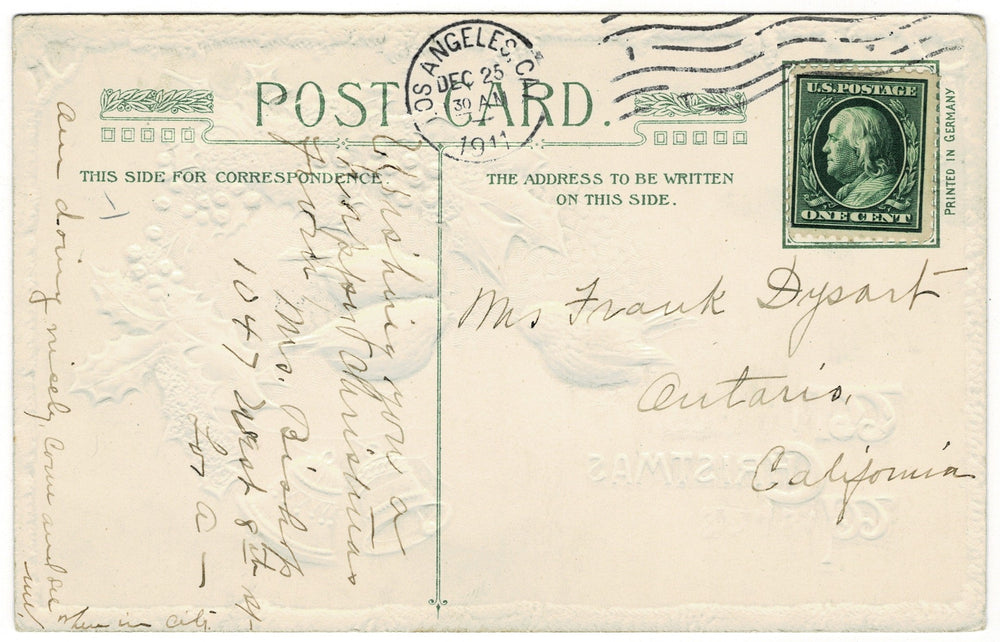 POST CARD.
THIS SIDE FOR CORRESPONDENCE
THE ADDRESS TO BE WRITTEN
ON THIS SIDE.
LOS ANGELES, CAL.
DEC 25
30 AM
1911
U.S. POSTAGE
ONE CENT
PRINTED IN GERMANY
Wishing you a
Happy Christmas
from
Mrs. Bishop
1047 West 8th St
Los A—
Am doing nicely, Come and see
me when in city.
Mrs Frank Dysart
Ontario,
California
CHRISTMAS